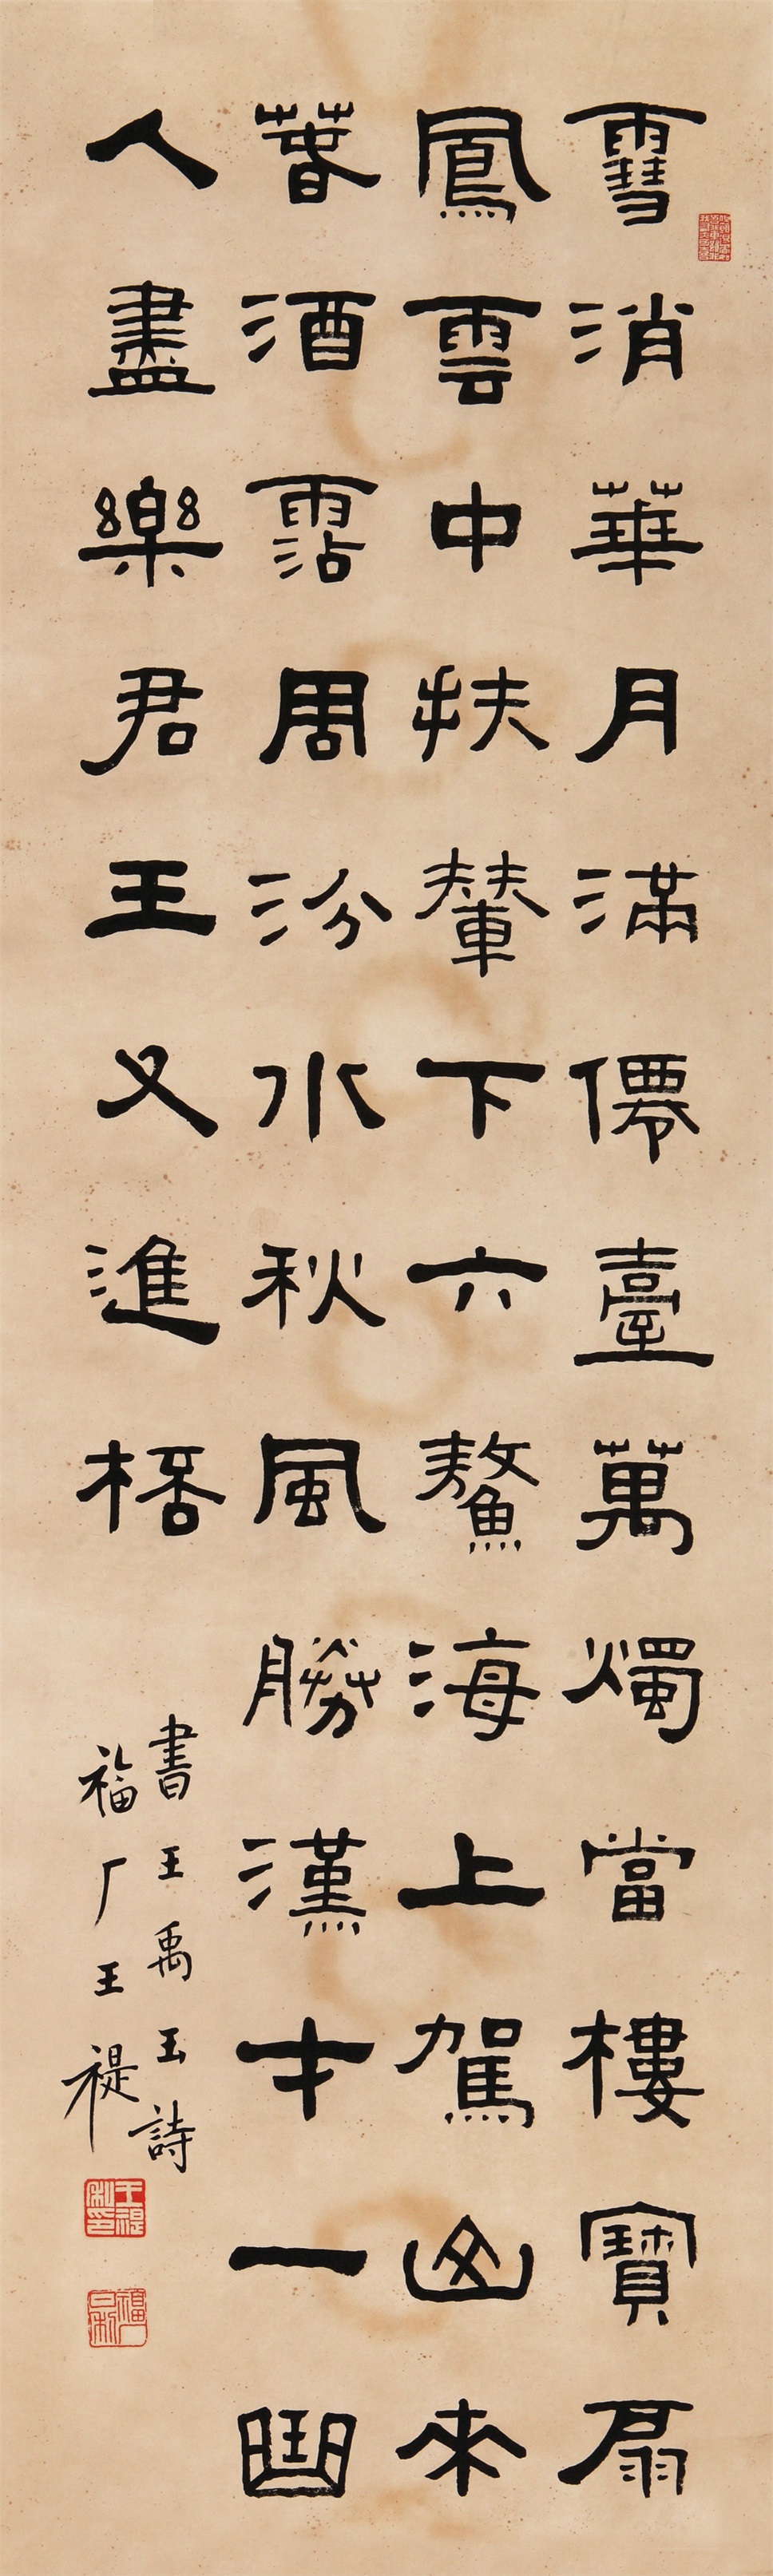 雪消華月滿僊臺萬燭當樓寶扇
鳳雲中扶輦下六鰲海上駕山來
萅酒霑周汾水秋風勝漢才一曲
人盡樂君王又進桮
書王禹玉詩
福厂王禔
王禔私印